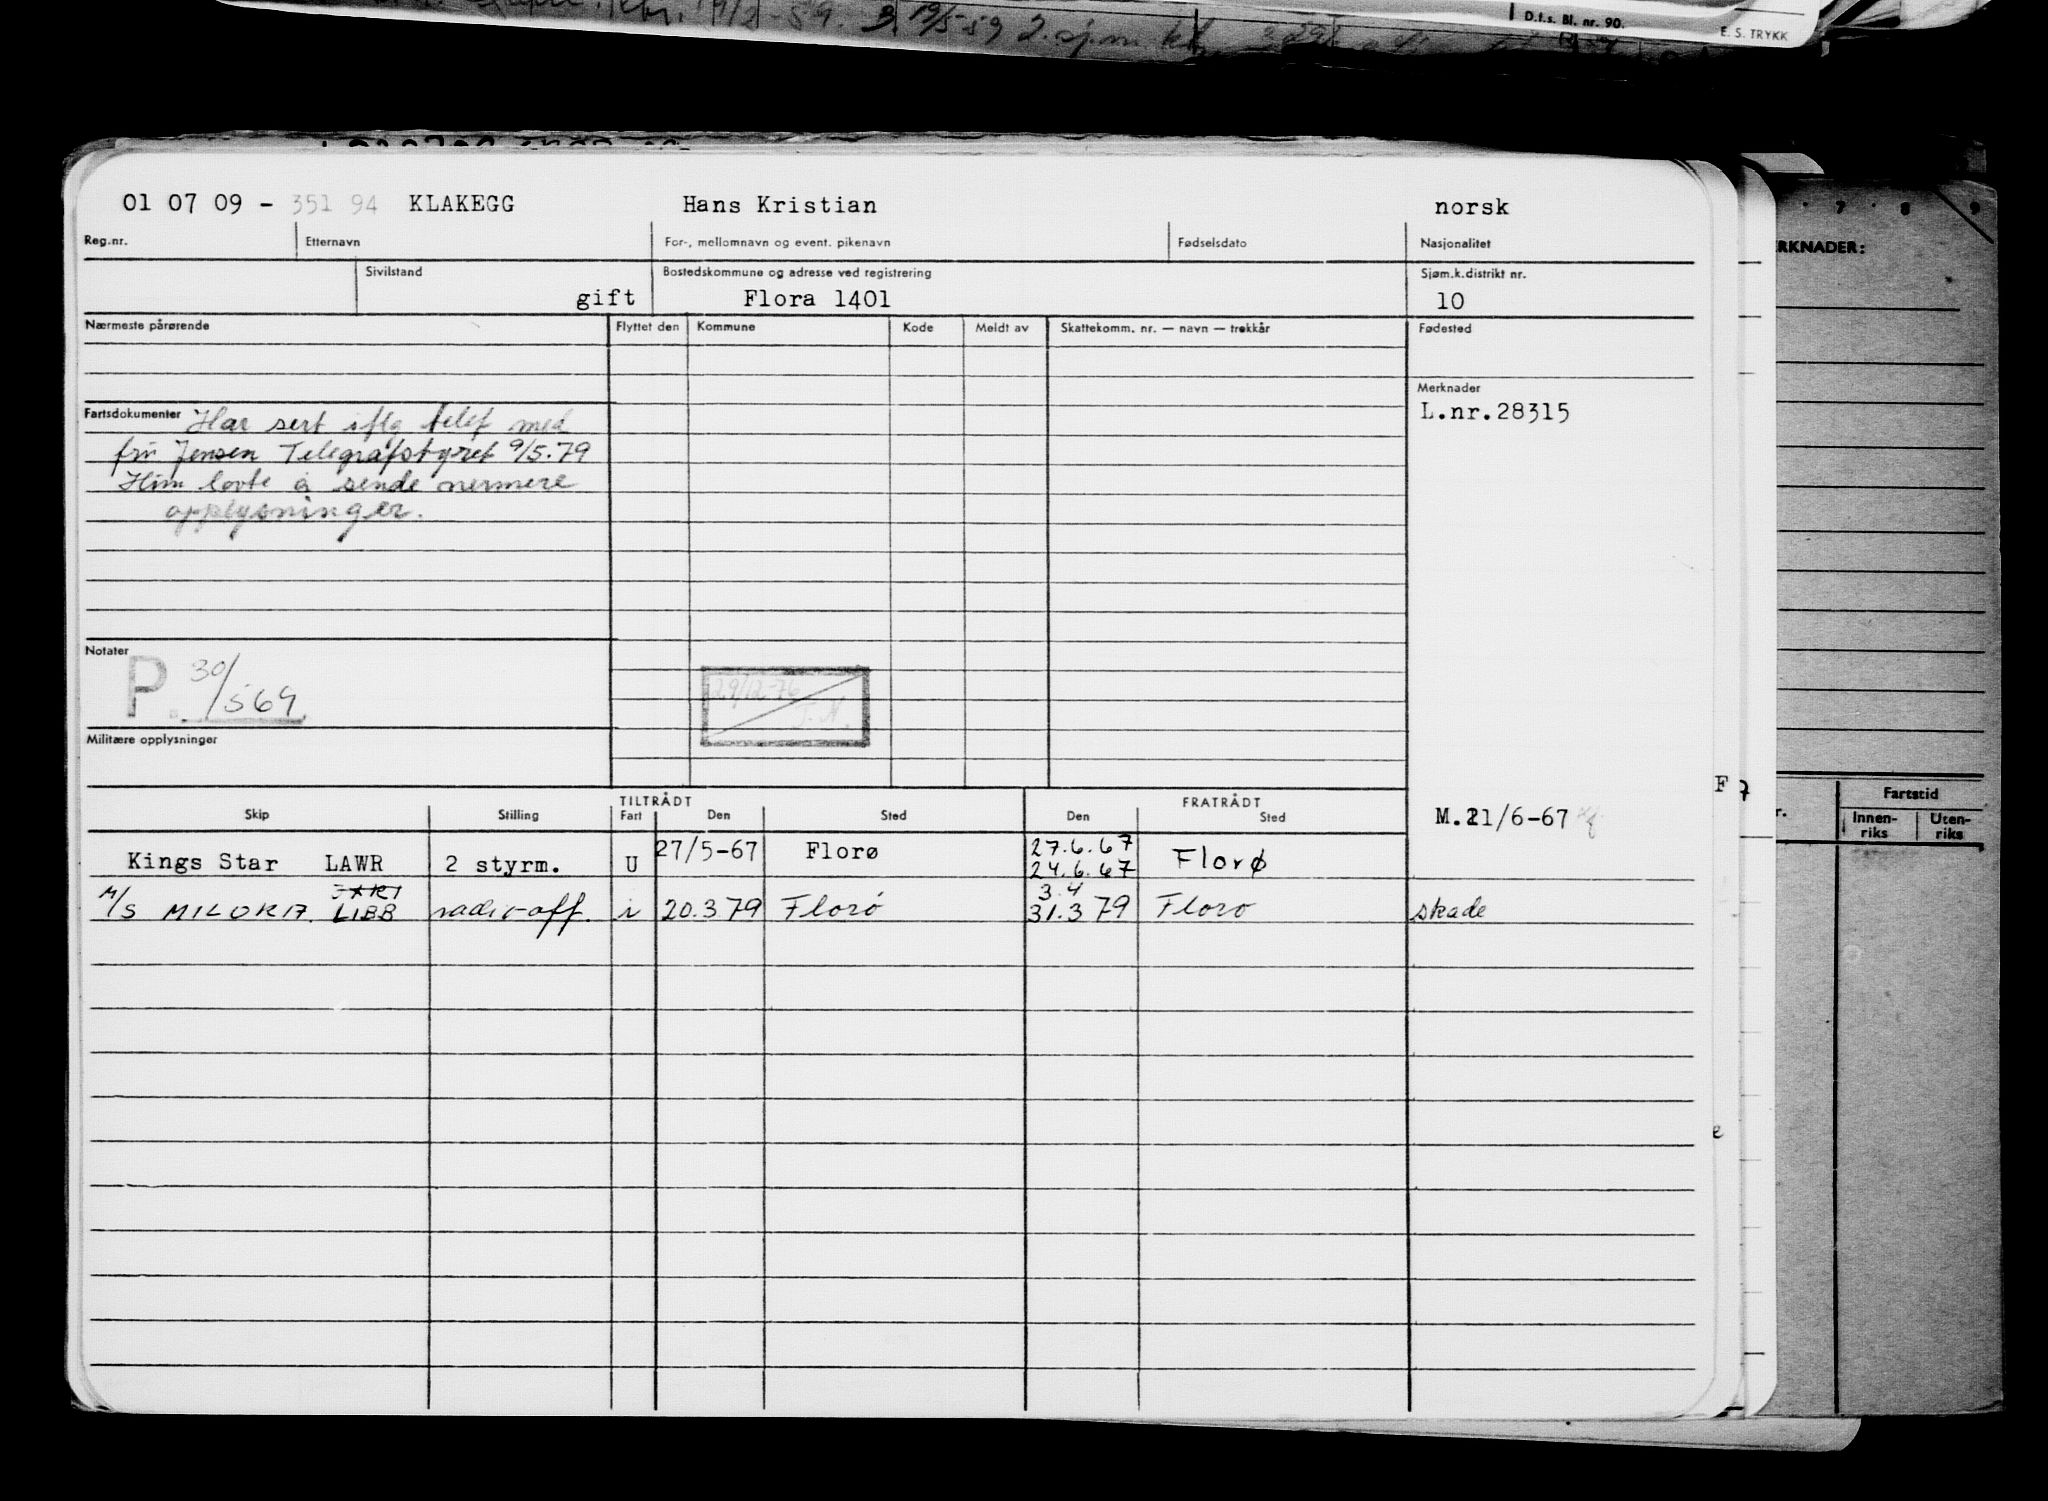 D.f.s. Bl. nr. 90.
E. S. TRYKK
01 07 09 - 351 94 KLAKEGG Hans Kristian norsk
Reg.nr. Etternavn For-, mellomnavn og event. pikenavn Fødselsdato Nasjonalitet
Sivilstand Bostedskommune og adresse ved registrering Sjøm.k.distrikt nr.
gift Flora 1401 10
Nærmeste pårørende Flyttet den Kommune Kode Meldt av Skattekomm. nr. — navn — trekkår Fødested
Merknader
L.nr.28315
Fartsdokumenter Har sert iflg telef med
fru Jensen Telegrafstyret 9/5.79
Hun lovte å sende nermere
opplysninger.
Notater
P. 30/564
29/12-76
Militære opplysninger
TILTRÅDT FRATRÅDT
Skip Stilling Fart Den Sted Den Sted
M.21/6-67
Kings Star LAWR 2 styrm. U 27/5-67 Florø 27.6.67 24.6.67 Florø
M/S MILORA LIBB radio-off. i 20.3 79 Florø 3.4 31.3 79 Florø skade
7 8 9
RKNADER:
F 7
Fartstid
r. Innen-riks Uten-riks
e